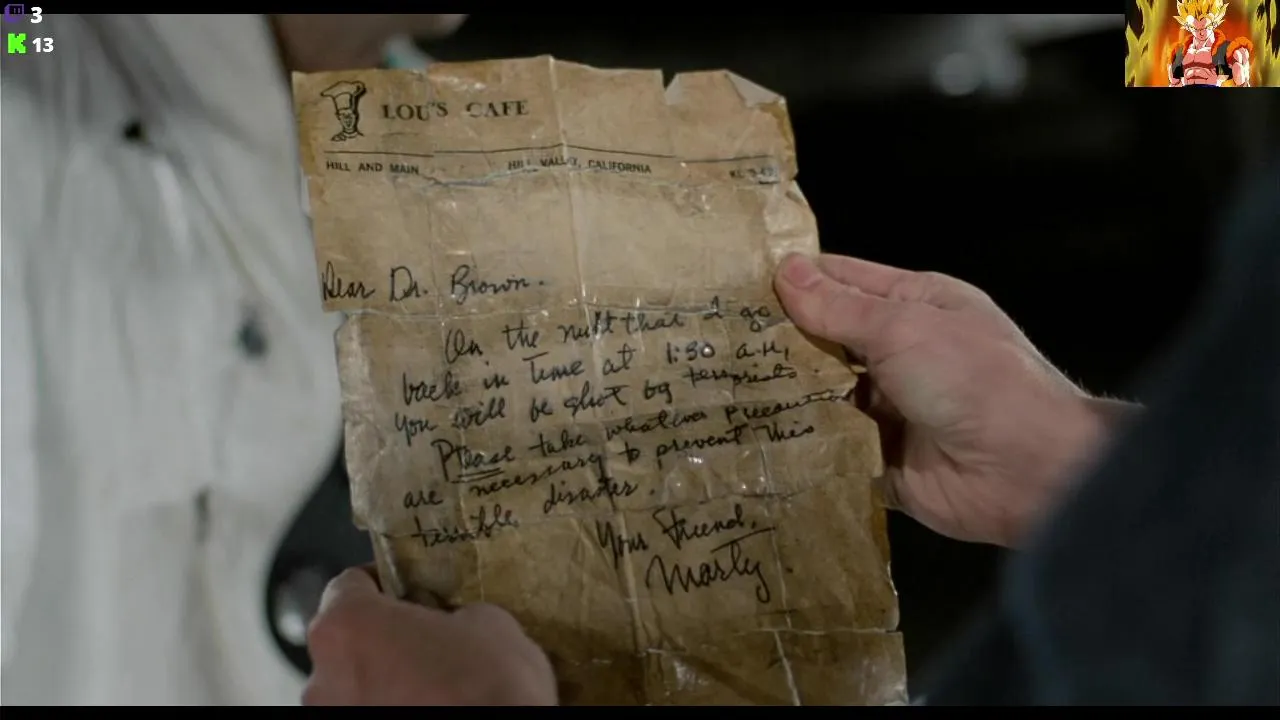 3
K 13
LOU'S CAFE
HILL AND MAIN HILL VALLEY, CALIFORNIA
Dear Dr. Brown.
On the night that I go
back in Time at 1:30 A.M,
you will be shot by terrorists.
Please take whatever precautions
are necessary to prevent this
terrible disaster.
Your Friend,
Marty.